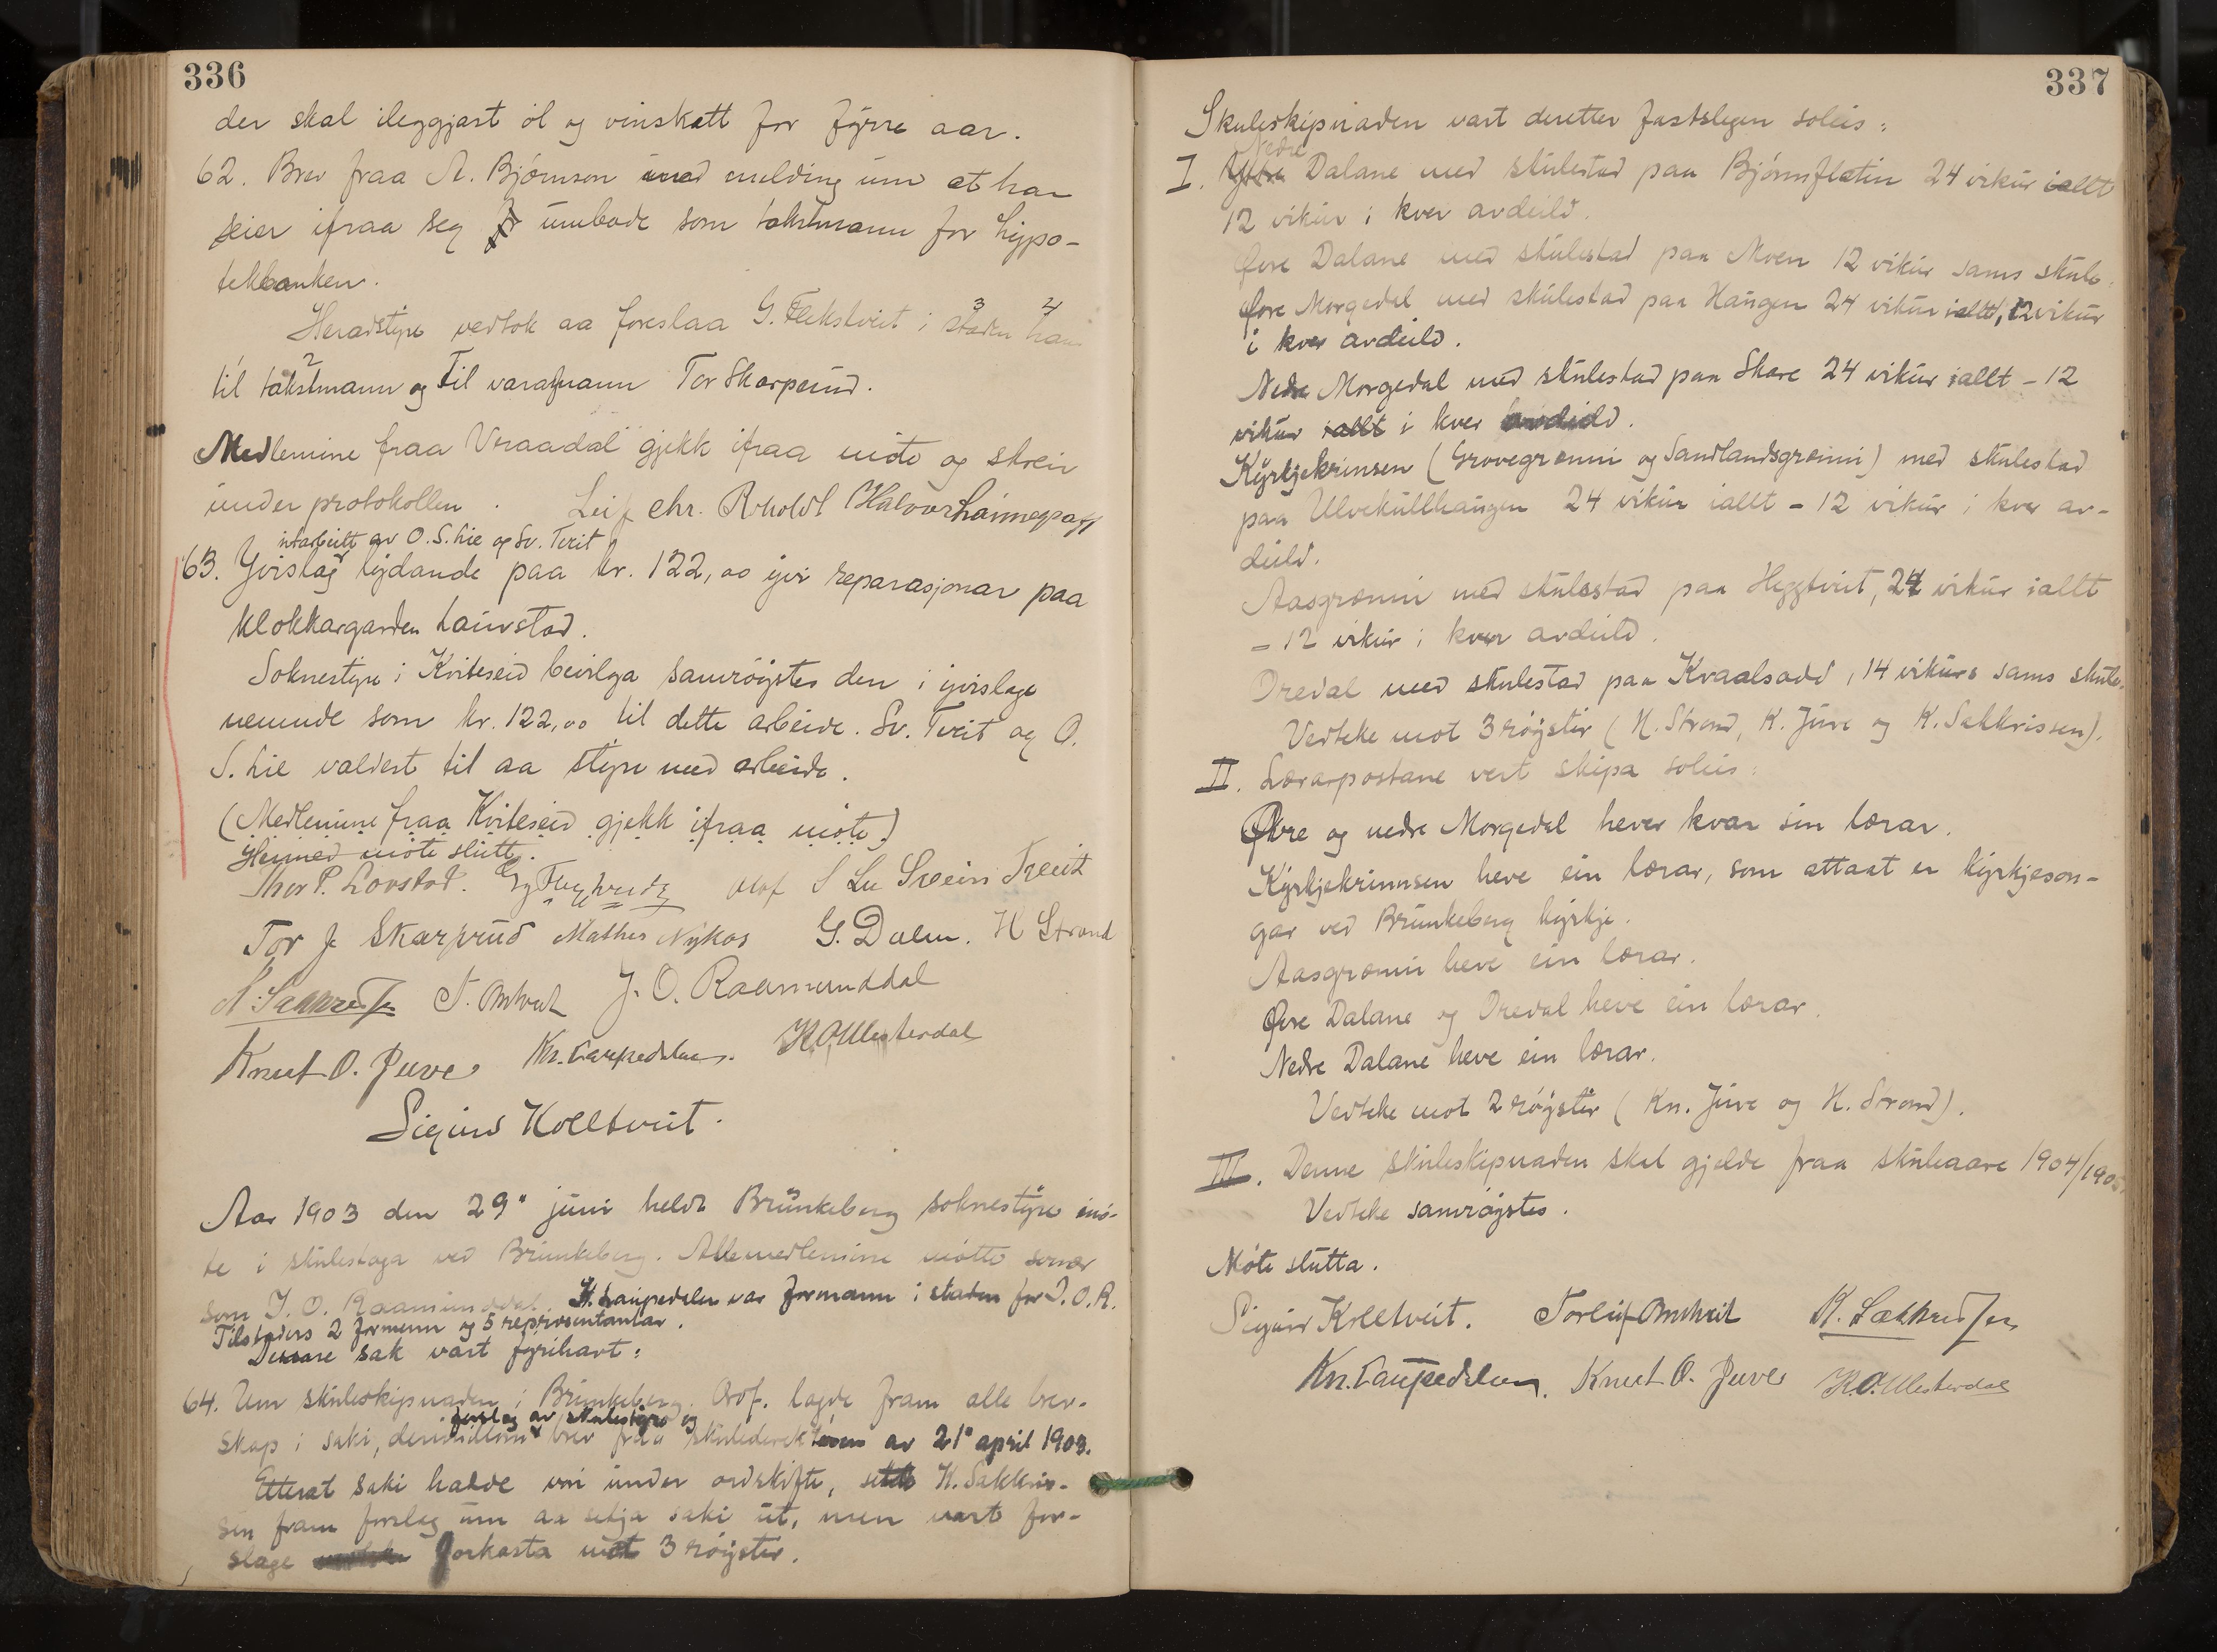 336
der skal ileggjast öl og vinskatt for fyrre aar.
62. Brev fraa A. Bjórnson med melding um at han
seier ifraa seg umbode som takstmann for hypo-
tekbanken.
Heradstyre vedtok aa foreslaa G. Flekstveit i staden hans
til takstmann og til varamann Tor Skarprud.
Medlemine fraa Vraadal gjekk ifraa móte og skreiv
under protokollen. Leif Chr. Rholdt Halvor
utarbeitt av O. S. Lie og Sv. Tveit
63. Yvislag lydande paa kr. 122,00 yvi reparasjonar paa
klokkargarden Laurstad.
Soknestyre i Kviteseid bevilga samróystes den i yvislage
nemnde som kr. 122,00 til dette arbeide. Sv. Tveit og O.
S. Lie valdest til aa styre med arbeide.
(Medlemine fraa Kviteseid gjekk ifraa móte)
Hermed móte slutt.
Thor P. Lovstad. Olof S Lie Svein Tveit
Tor J. Skarprud Mathes Nykos G. Dalen. H Strand
K. Sakkrissen T. Omtveit J. O. Raamunddal
Knut O. Juve Kn. Laupedalen. K. O. Vesterdal
Sigurd Kolltveit.
Aar 1903 den 29" juni heldt Brunkeberg soknestyre mó-
te i skulestoga ved Brunkeberg. Alle medlemine mótte
som J. O. Raamunddal. Kn. Laupedalen var formann i staden for J. O. R.
Tilstades 2 formenn og 5 representantar.
Dessare sak vart fyrihavt:
64. Um skuleskipnaden i Brunkeberg. Ordf. lagde fram alle brev-
forslag av skulestyre og
skap i saki, derimillom brev fraa skulederektoren av 21" april 1903.
Etterat saki hadde vori under ordskifte, sette K. Sakkris-
sen fram forslag um aa setja saki ut, men vart for-
slage forkasta mot 3 róyster.
337
Skuleskipnaden vart deretter fastslegen soleis:
Nedre
I. Dalane med skulestad paa Bjórnflatin 24 vikur iallt
12 vikur i kver avdeild.
Øvre Dalane med skulestad paa Moen 12 vikur sams skule.
Øvre Morgedal med skulestad paa Haugen 24 vikur iallt, 12 vikur
i kver avdeild.
Nedre Morgedal med skulestad paa Skare 24 vikur iallt – 12
vikur iallt i kver avdeild.
Kyrkjekrinsen (Grovegrenni og Sandlandsgrenni) med skulestad
paa Ulvekullhaugen 24 vikur iallt – 12 vikur i kver av-
deild.
Aasgrenni med skulestad paa Heggtveit, 24 vikur iallt
– 12 vikur i kver avdeild.
Oredal med skulestad paa Kvaalsodd, 14 vikurs sams skule.
Vedteke mot 3 róyster (H. Strand, K. Juve og K. Sakkrissen).
II. Lærarpostane vert skipa soleis:
Øvre og nedre Morgedal hever kvar sin lærar.
Kyrkjekrinnsen heve ein lærar, som attaat er kyrkjeson-
gar ved Brunkeberg kyrkje.
Aasgrenni heve ein lærar.
Øvre Dalane og Oredal heve ein lærar.
Nedre Dalane heve ein lærar.
Vedteke mot 2 róyster (Kn. Juve og H. Strand).
III. Denne skuleskipnaden skal gjelde fraa skuleaare 1904/1905.
Vedteke samróystes.
Móte slutta.
Sigurd Kolltveit. Torleif Omtveit K. Sakkrissen
Kn. Laupedalen. Knut O. Juve K. O. Vesterdal